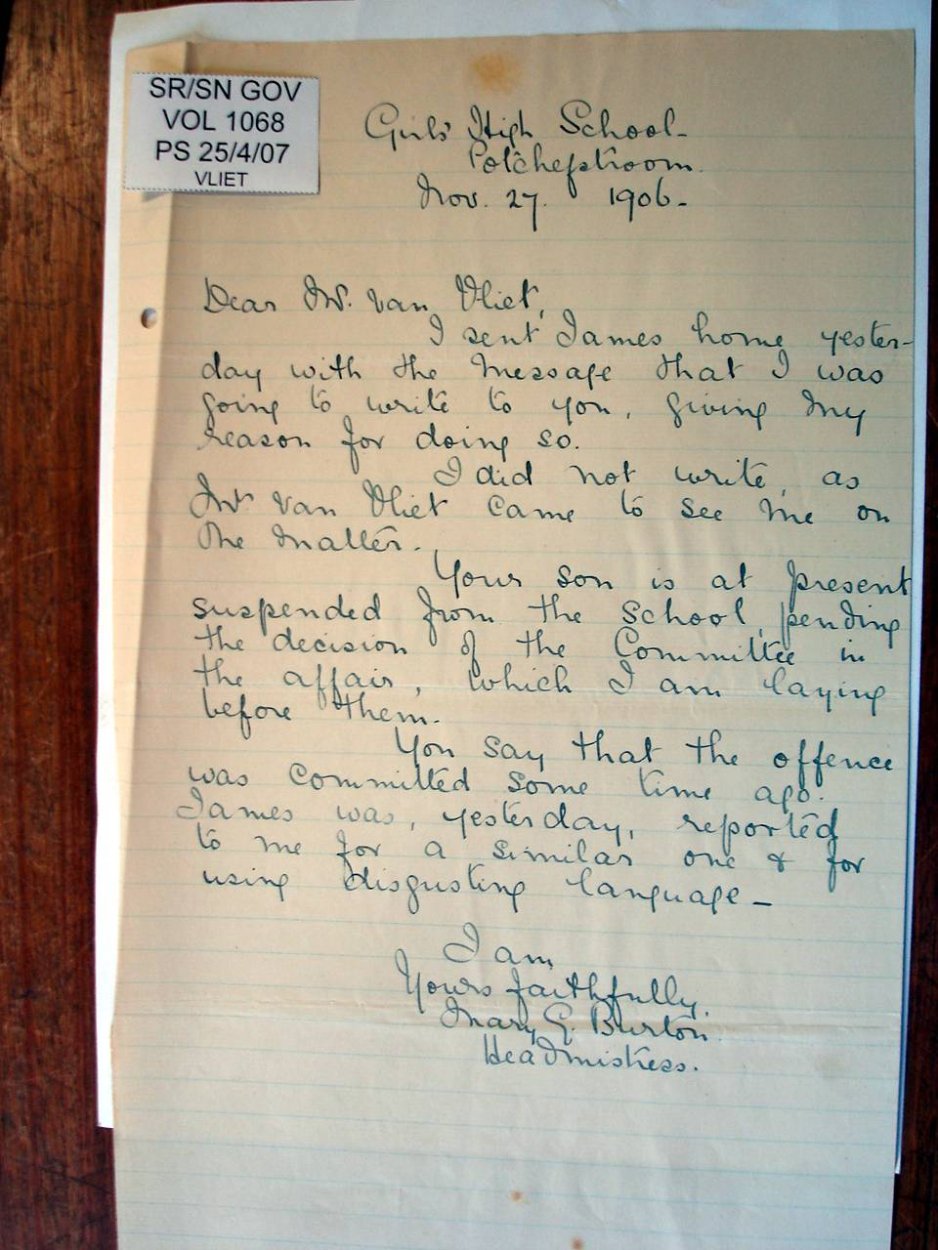 SR/SN GOV
VOL 1068
PS 25/4/07
VLIET
Girls' High School.
Potchefstroom.
Nov. 27. 1906.
Dear Mr. Van Vliet,
I sent James home yester-
day with the message that I was
going to write to you, giving my
reason for doing so.
I did not write, as
Mr Van Vliet came to see me on
the matter.
Your son is at present
suspended from the school, pending
the decision of the Committee in
the affair, which I am laying
before them.
You say that the offence
was committed some time ago.
James was, yesterday, reported
to me for a similar one & for
using disgusting language –
I am,
Yours faithfully,
Mary G. Burton.
Headmistress.